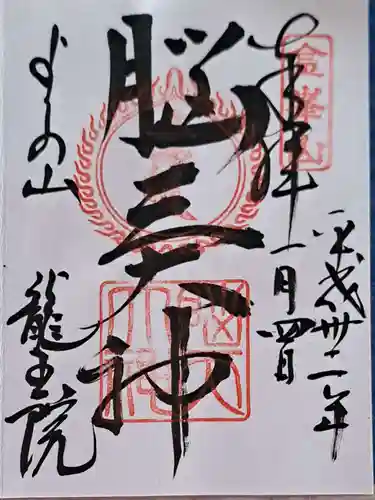 金峯山
奉拝
平成卅二年
一月四日
脳天大神
脳天
大神
よしの山
龍王院